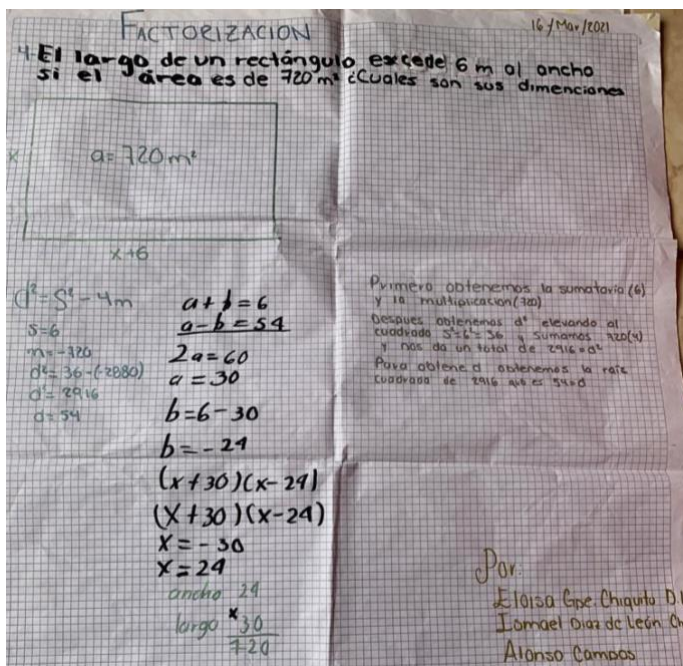 FACTORIZACION
16/Mar/2021
4. El largo de un rectángulo excede 6 m al ancho
si el área es de 720 m² ¿Cuales son sus dimenciones
x
a = 720 m²
x+6
d² = S² - 4m
s = 6
m = -720
d² = 36 - (-2880)
d² = 2916
d = 54
a + b = 6
a - b = 54
2a = 60
a = 30
b = 6 - 30
b = -24
(x+30)(x-24)
(x+30)(x-24)
x = -30
x = 24
ancho 24
largo x 30
720
Primero obtenemos la sumatoria (6)
y la multiplicacion (720)
Despues obtenemos d² elevando al
cuadrado S²=6²=36 y sumamos 720(4)
y nos da un total de 2916 = d²
Para obtene d obtenemos la raiz
cuadrada de 2916 que es 54=d
Por:
Eloisa Gpe. Chiquito D.
Ismael Diaz de León Ch
Alonso Campos